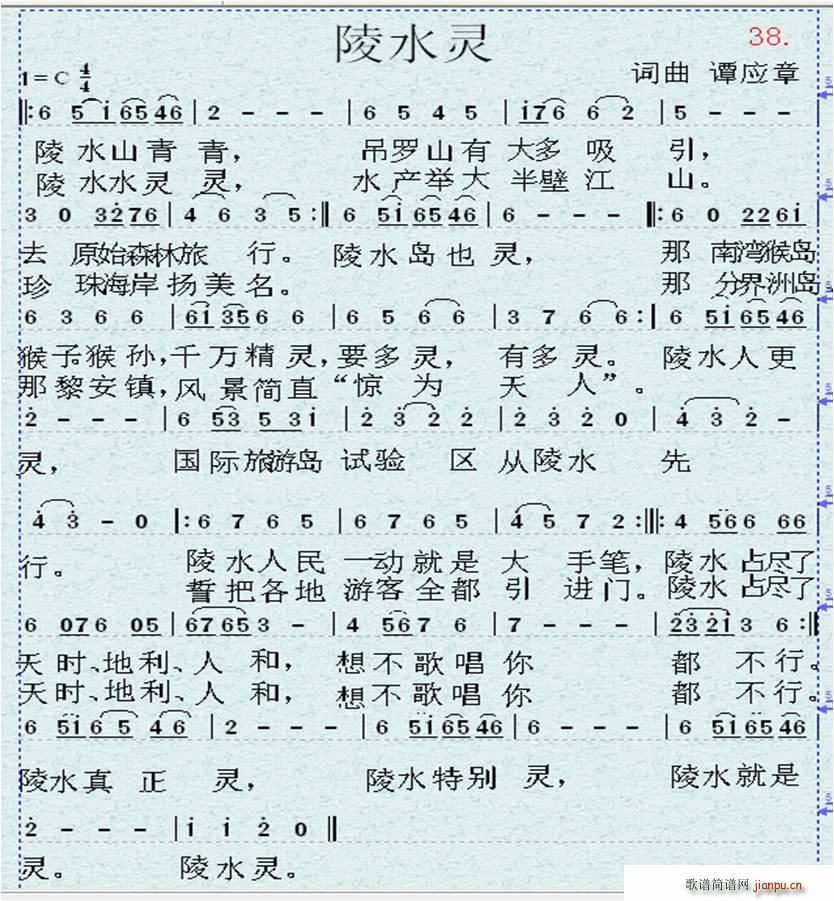 陵水灵
38.
1=C 4/4
词曲 谭应章
‖:6 5 i 65 46 | 2 - - - | 6 5 4 5 | i76 6 2 | 5 - - -
陵水山青青, 吊罗山有大多吸引,
陵水水灵灵, 水产举大半壁江山。
3 0 3276 | 4 6 3 5 :‖ 6 5i 6546 | 6 - - - ‖:6 0 226i
去原始森林旅行。陵水岛也灵, 那南湾猴岛
珍珠海岸扬美名。 那分界洲岛
6 3 6 6 | 6i 356 6 | 6 5 6 6 | 3 7 6 6 :| 6 5i 6546
猴子猴孙,千万精灵,要多灵,有多灵。陵水人更
那黎安镇,风景简直“惊为天人”。
2 - - - | 6 53 5 3i | 2 3 2 2 | 2 3 2 0 | 4 3 2 -
灵, 国际旅游岛试验区从陵水先
4 3 - 0 |:6 7 6 5 | 6 7 6 5 | 4 5 7 2 :‖: 4 566 66
行。 陵水人民一动就是大手笔,陵水占尽了
誓把各地游客全都引进门。陵水占尽了
6 076 05 | 67653 - | 4 567 6 | 7 - - - | 232i3 6 :‖
天时、地利、人和,想不歌唱你都不行。
天时、地利、人和,想不歌唱你都不行。
6 5i 6 5 4 6 | 2 - - - | 6 5i 6546 | 6 - - - | 6 5i 6546
陵水真正灵, 陵水特别灵, 陵水就是
2 - - - | i i 2 0 ‖
灵。 陵水灵。
歌谱简谱网 jianpu.cn